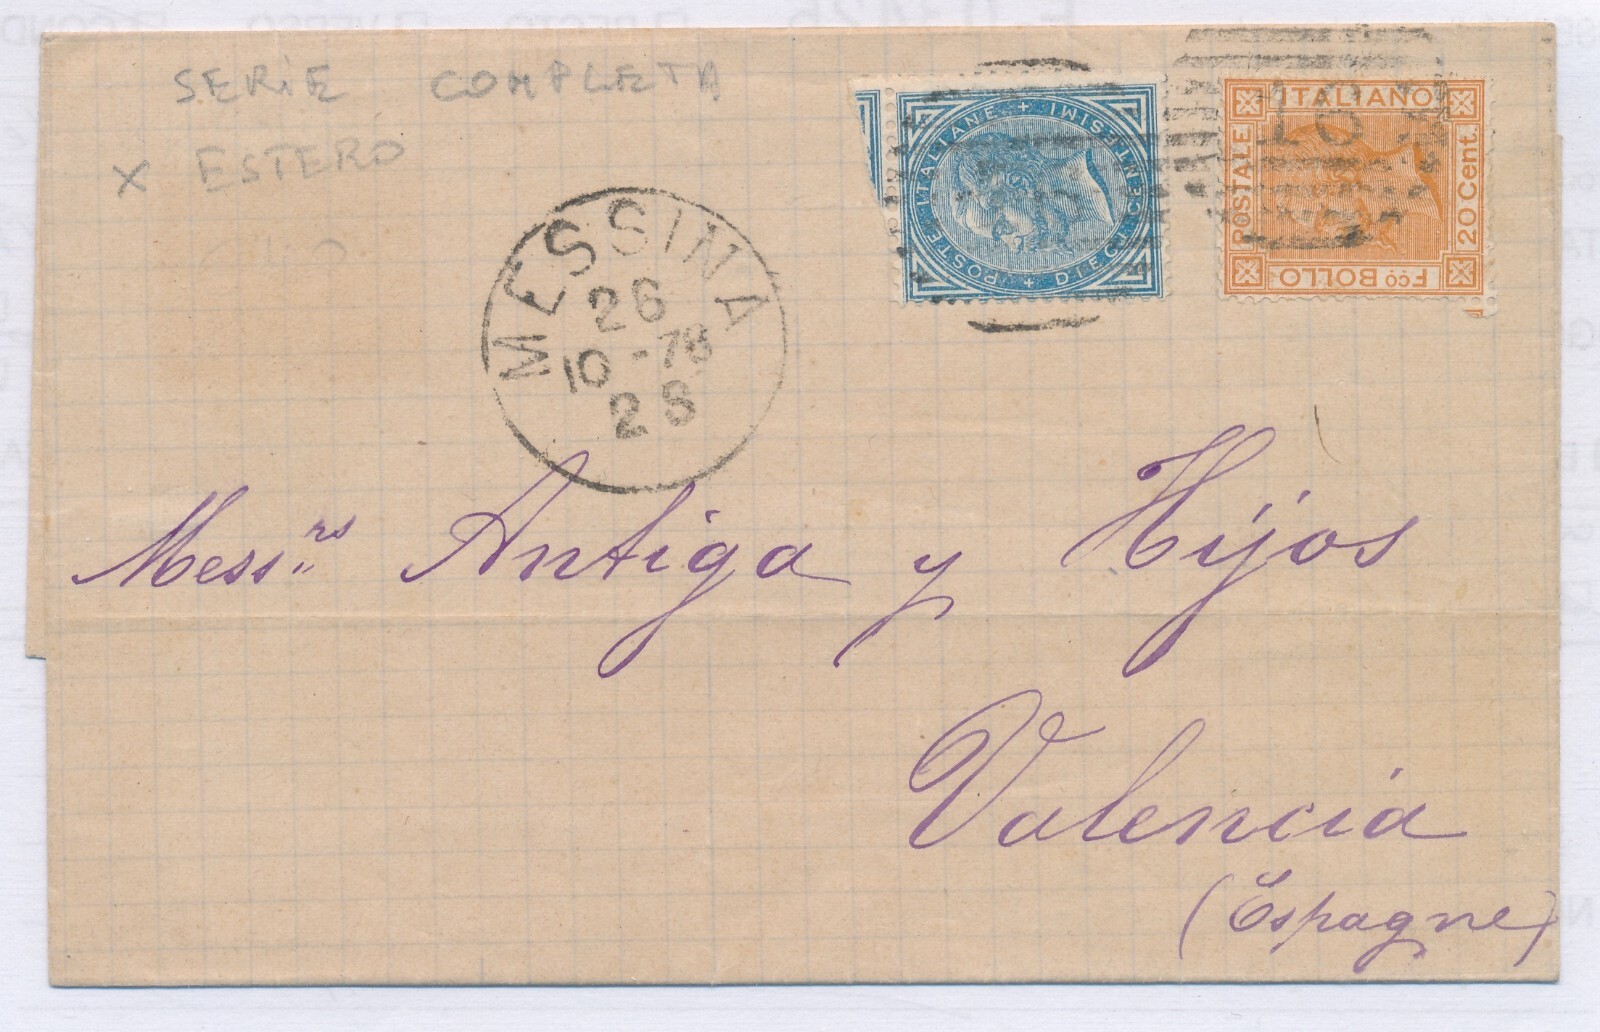 SERIE COMPLETA
X ESTERO
POSTE ITALIANE + DIECI CENTESIMI +
ITALIANO
POSTALE
20 Cent.
Fco BOLLO
MESSINA
26
10-78
2S
Mess.rs Antiga y Hijos
Valencia
(Espagne)